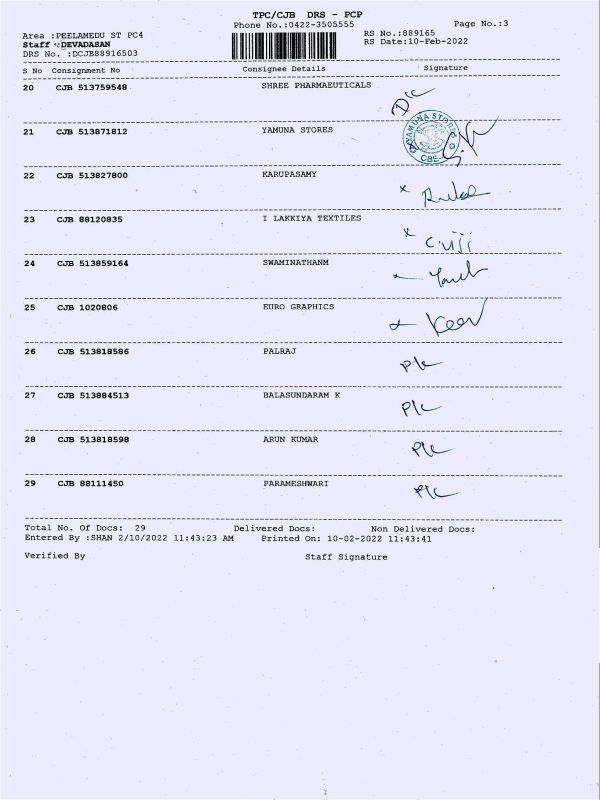 TPC/CJB DRS - PCP
Phone No.:0422-3505555
Page No.:3
Area :PEELAMEDU ST PC4
RS No.:889165
Staff :DEVADASAN
RS Date:10-Feb-2022
DRS No. :DCJB88916503
S No Consignment No Consignee Details Signature
20 CJB 513759548 SHREE PHARMAEUTICALS
21 CJB 513871812 YAMUNA STORES
YAMUNA STORES
CBE
22 CJB 513827800 KARUPASAMY
23 CJB 88120835 I LAKKIYA TEXTILES
24 CJB 513859164 SWAMINATHANM
25 CJB 1020806 EURO GRAPHICS
26 CJB 513818586 PALRAJ
27 CJB 513884513 BALASUNDARAM K
28 CJB 513818598 ARUN KUMAR
29 CJB 88111450 PARAMESHWARI
Total No. Of Docs: 29 Delivered Docs: Non Delivered Docs:
Entered By :SHAN 2/10/2022 11:43:23 AM Printed On: 10-02-2022 11:43:41
Verified By Staff Signature